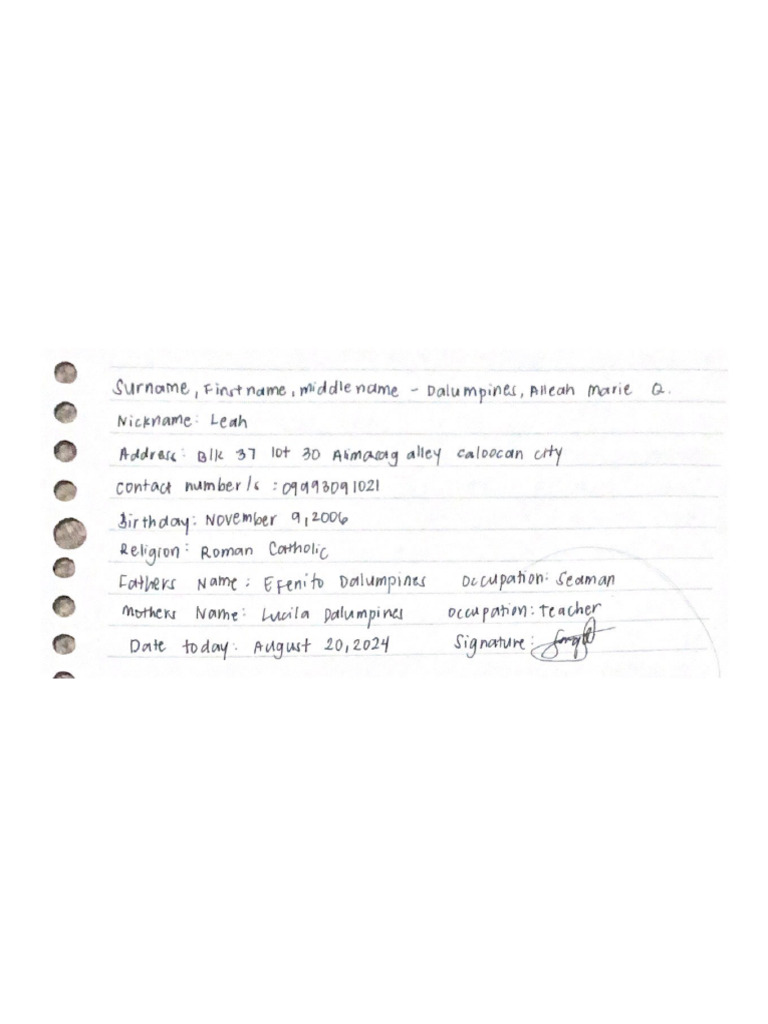 Surname, First name, middle name - Dalumpines, Alleah Marie Q.
Nickname: Leah
Address: Blk 37 lot 30 Alimasag alley caloocan city
contact number/s : 09993091021
Birthday: November 9, 2006
Religion: Roman Catholic
Fathers Name: Efenito Dalumpines Occupation: Seaman
mothers Name: Lucila Dalumpines Occupation: teacher
Date today: August 20, 2024 Signature: